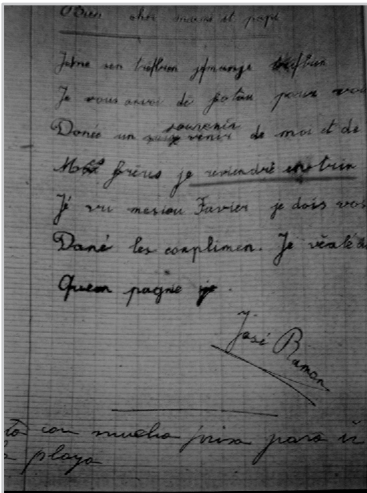 Bien cher maman et papa
Jsine son trèfbien jemange
Je vous anvoi dé fotau pour vou
Donée un souvenir de moi et de
Més frérus je reviendré entrin
Jé vu mesiou Favier je dois vos
Dané les conplimen. Je
Quem pagne je.
José Ramon
ta con mucha prisa para ir
playa